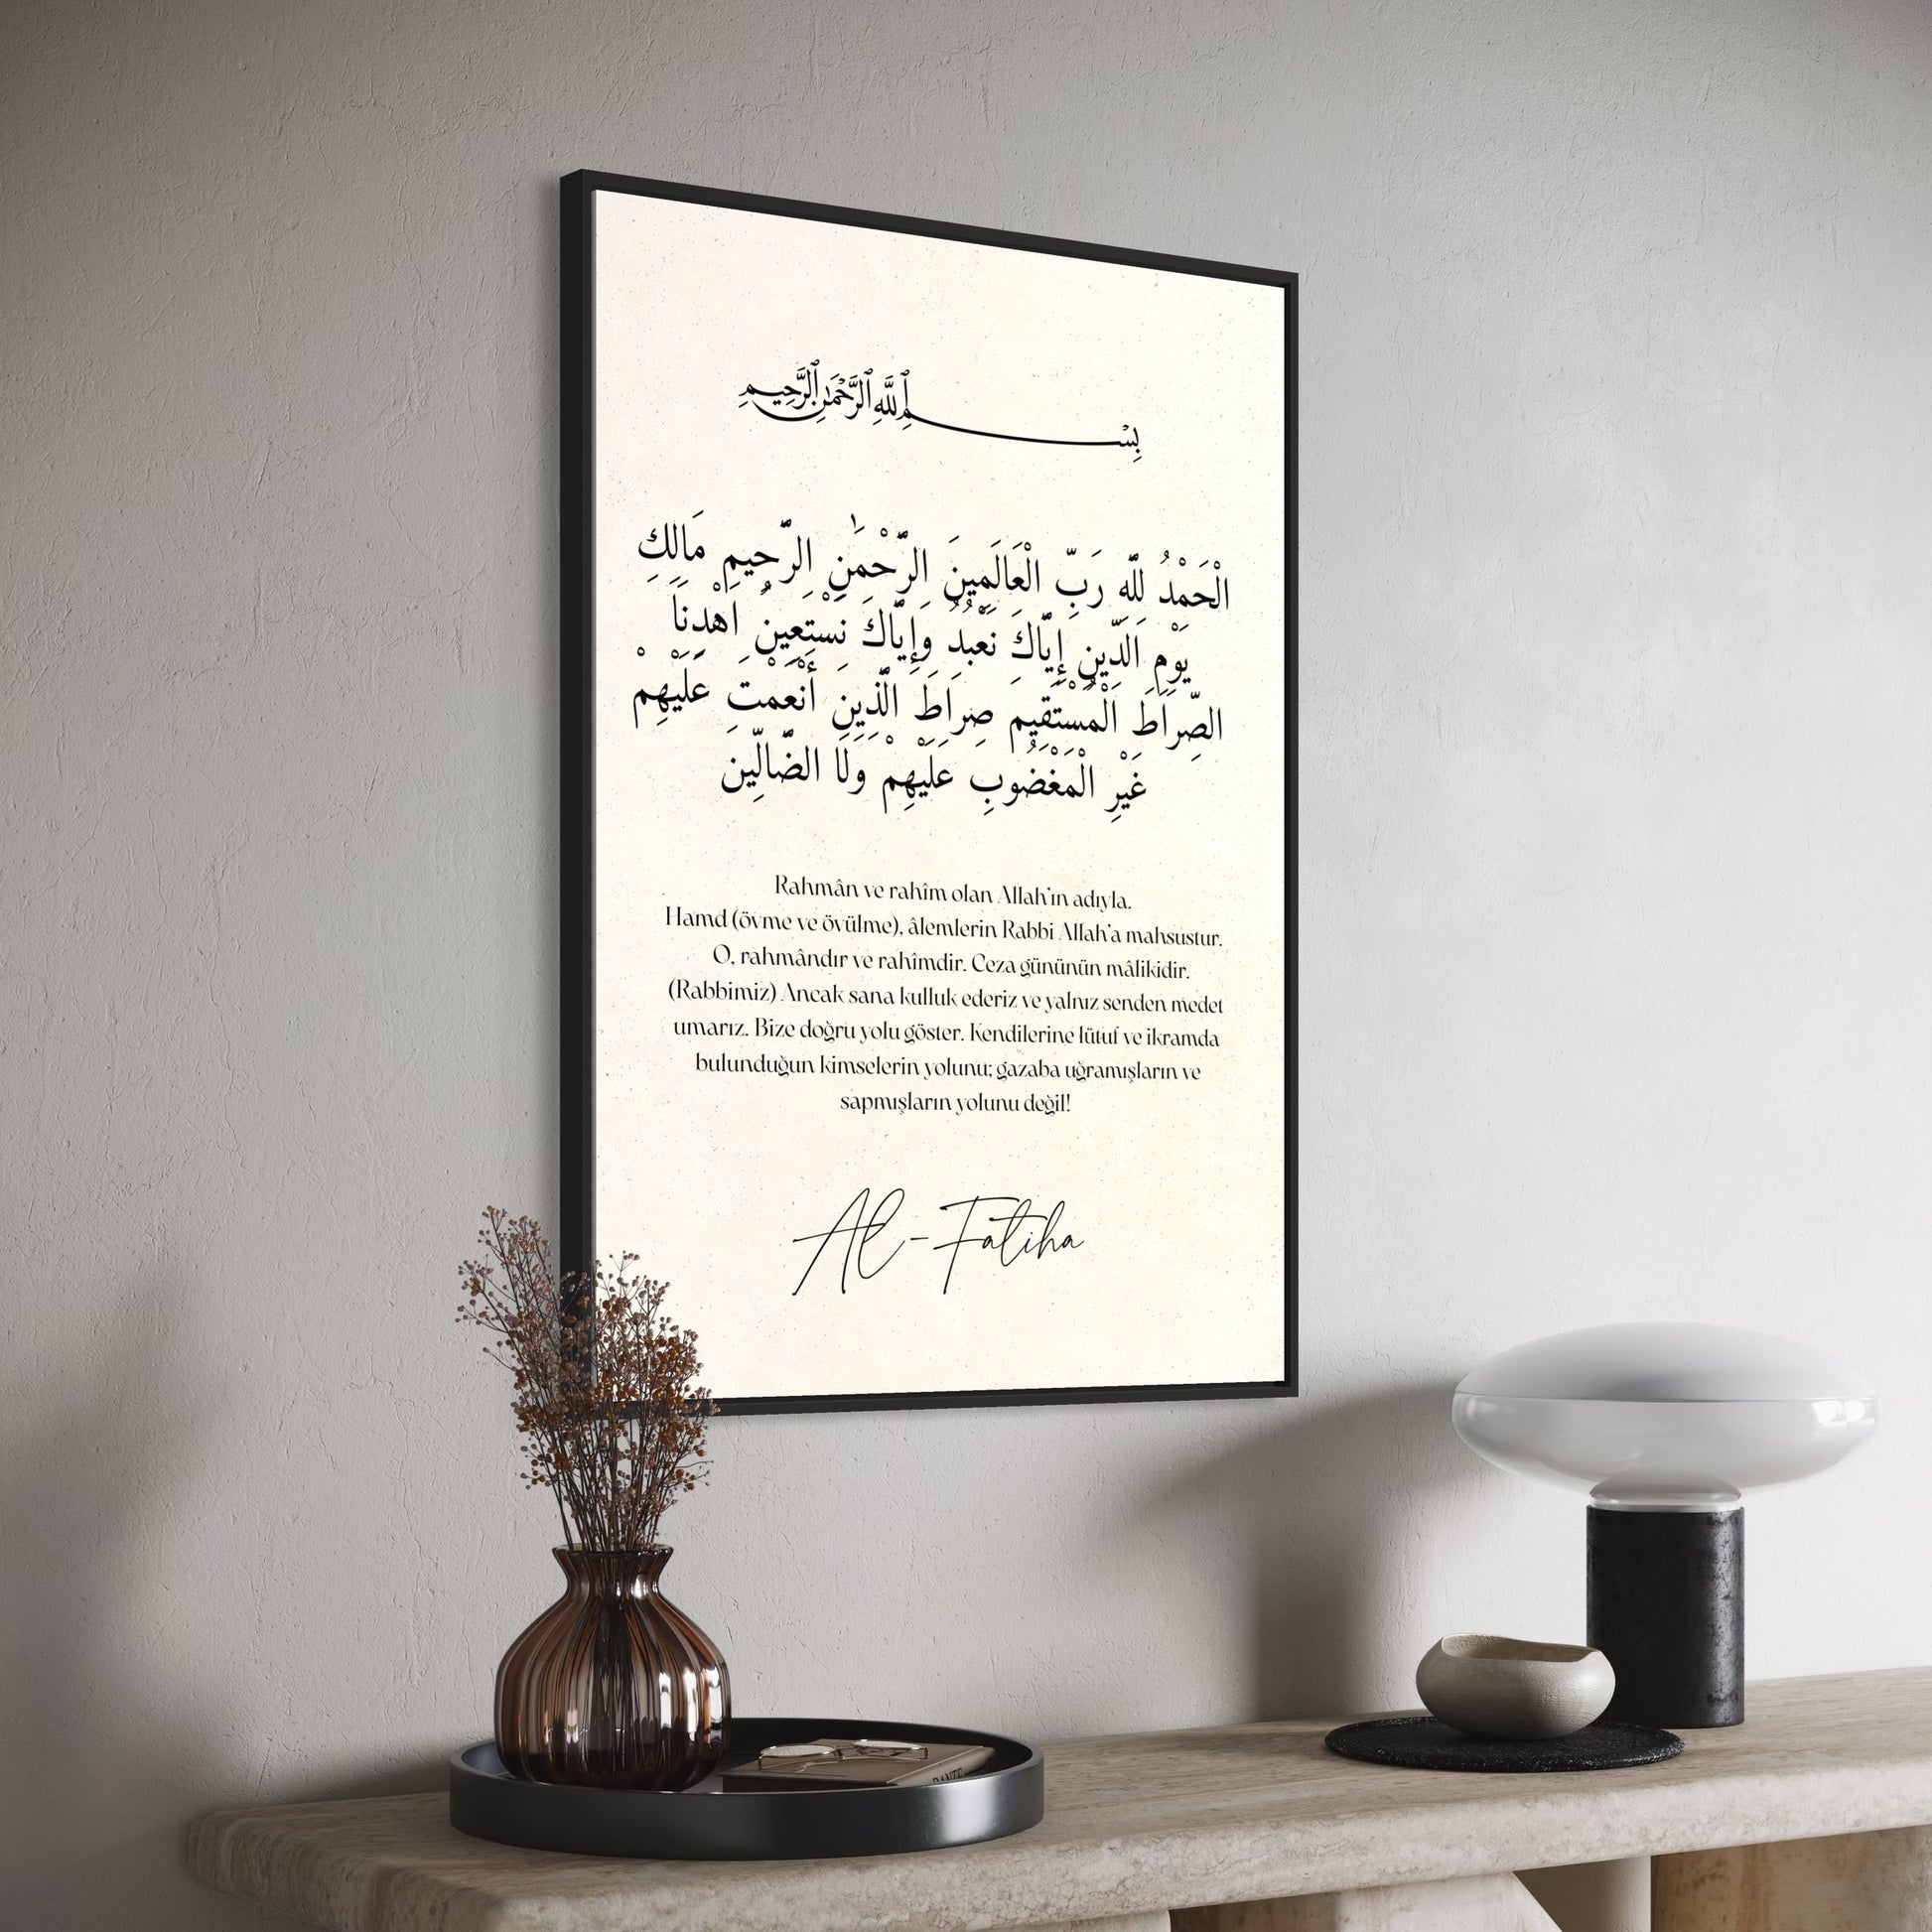 بِسْمِ ٱللَّهِ ٱلرَّحْمَٰنِ ٱلرَّحِيمِ
الْحَمْدُ لِلَّهِ رَبِّ الْعَالَمِينَ الرَّحْمَٰنِ الرَّحِيمِ مَالِكِ
يَوْمِ الدِّينِ إِيَّاكَ نَعْبُدُ وَإِيَّاكَ نَسْتَعِينُ اهْدِنَا
الصِّرَاطَ الْمُسْتَقِيمَ صِرَاطَ الَّذِينَ أَنْعَمْتَ عَلَيْهِمْ
غَيْرِ الْمَغْضُوبِ عَلَيْهِمْ وَلَا الضَّالِّينَ
Rahmân ve rahîm olan Allah'ın adıyla.
Hamd (övme ve övülme), âlemlerin Rabbi Allah'a mahsustur.
O, rahmândır ve rahîmdir. Ceza gününün mâlikidir.
(Rabbimiz) Ancak sana kulluk ederiz ve yalnız senden medet
umarız. Bize doğru yolu göster. Kendilerine lütuf ve ikramda
bulunduğun kimselerin yolunu; gazaba uğramışların ve
sapmışların yolunu değil!
Al-Fatiha
DANTE